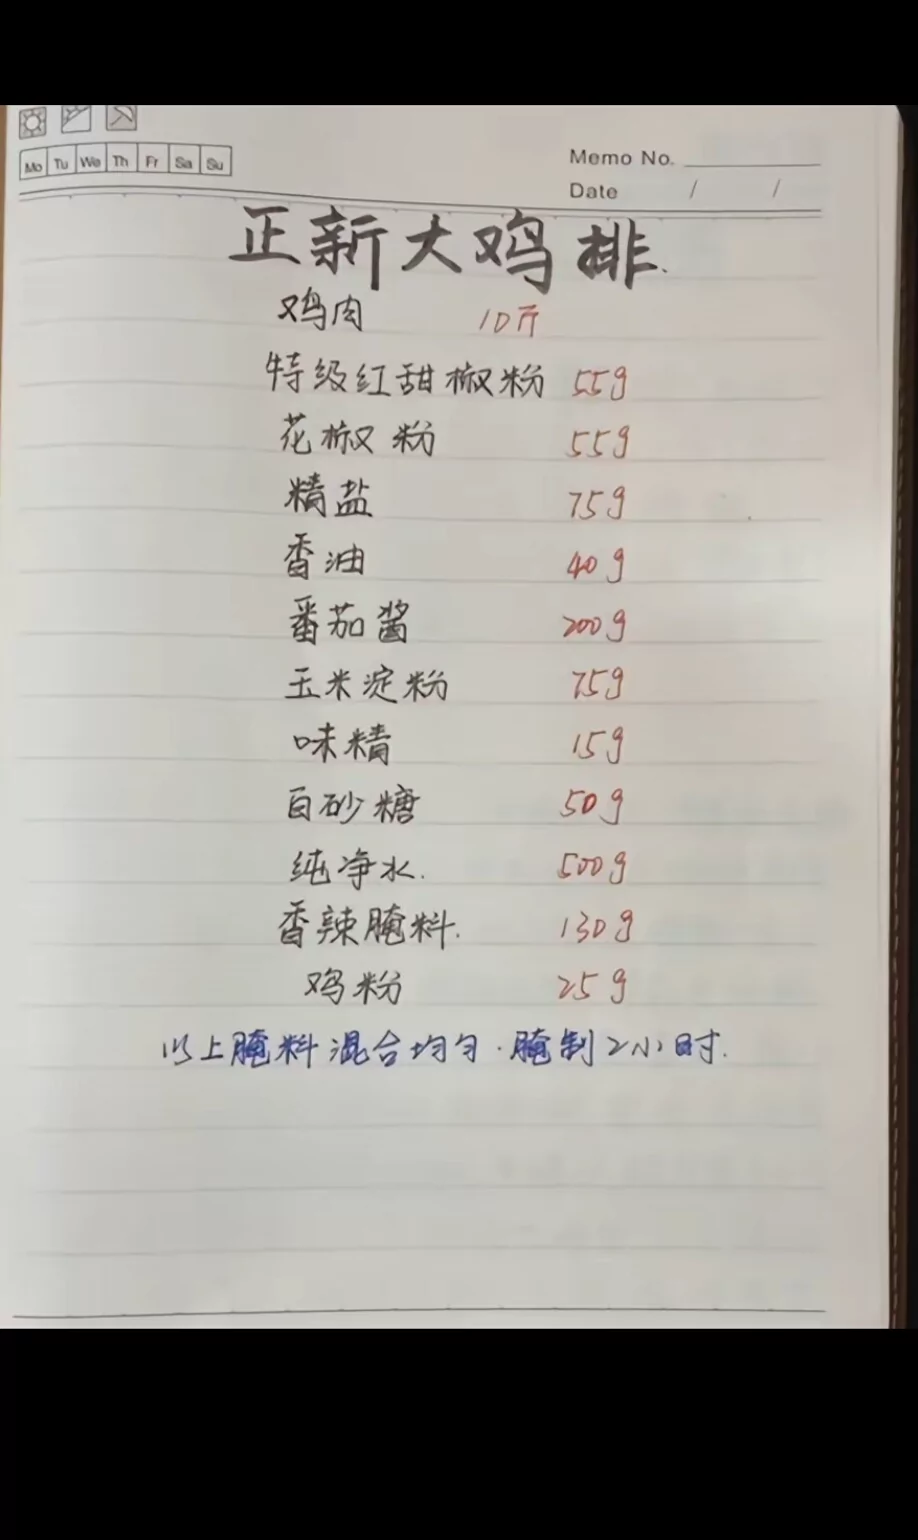 Mo Tu We Th Fr Sa Su
Memo No.
Date / /
正新大鸡排.
鸡肉 10斤
特级红甜椒粉 55g
花椒粉 55g
精盐 75g
香油 40g
番茄酱 200g
玉米淀粉 75g
味精 15g
白砂糖 50g
纯净水. 500g
香辣腌料. 130g
鸡粉 25g
以上腌料混合均匀.腌制2小时.